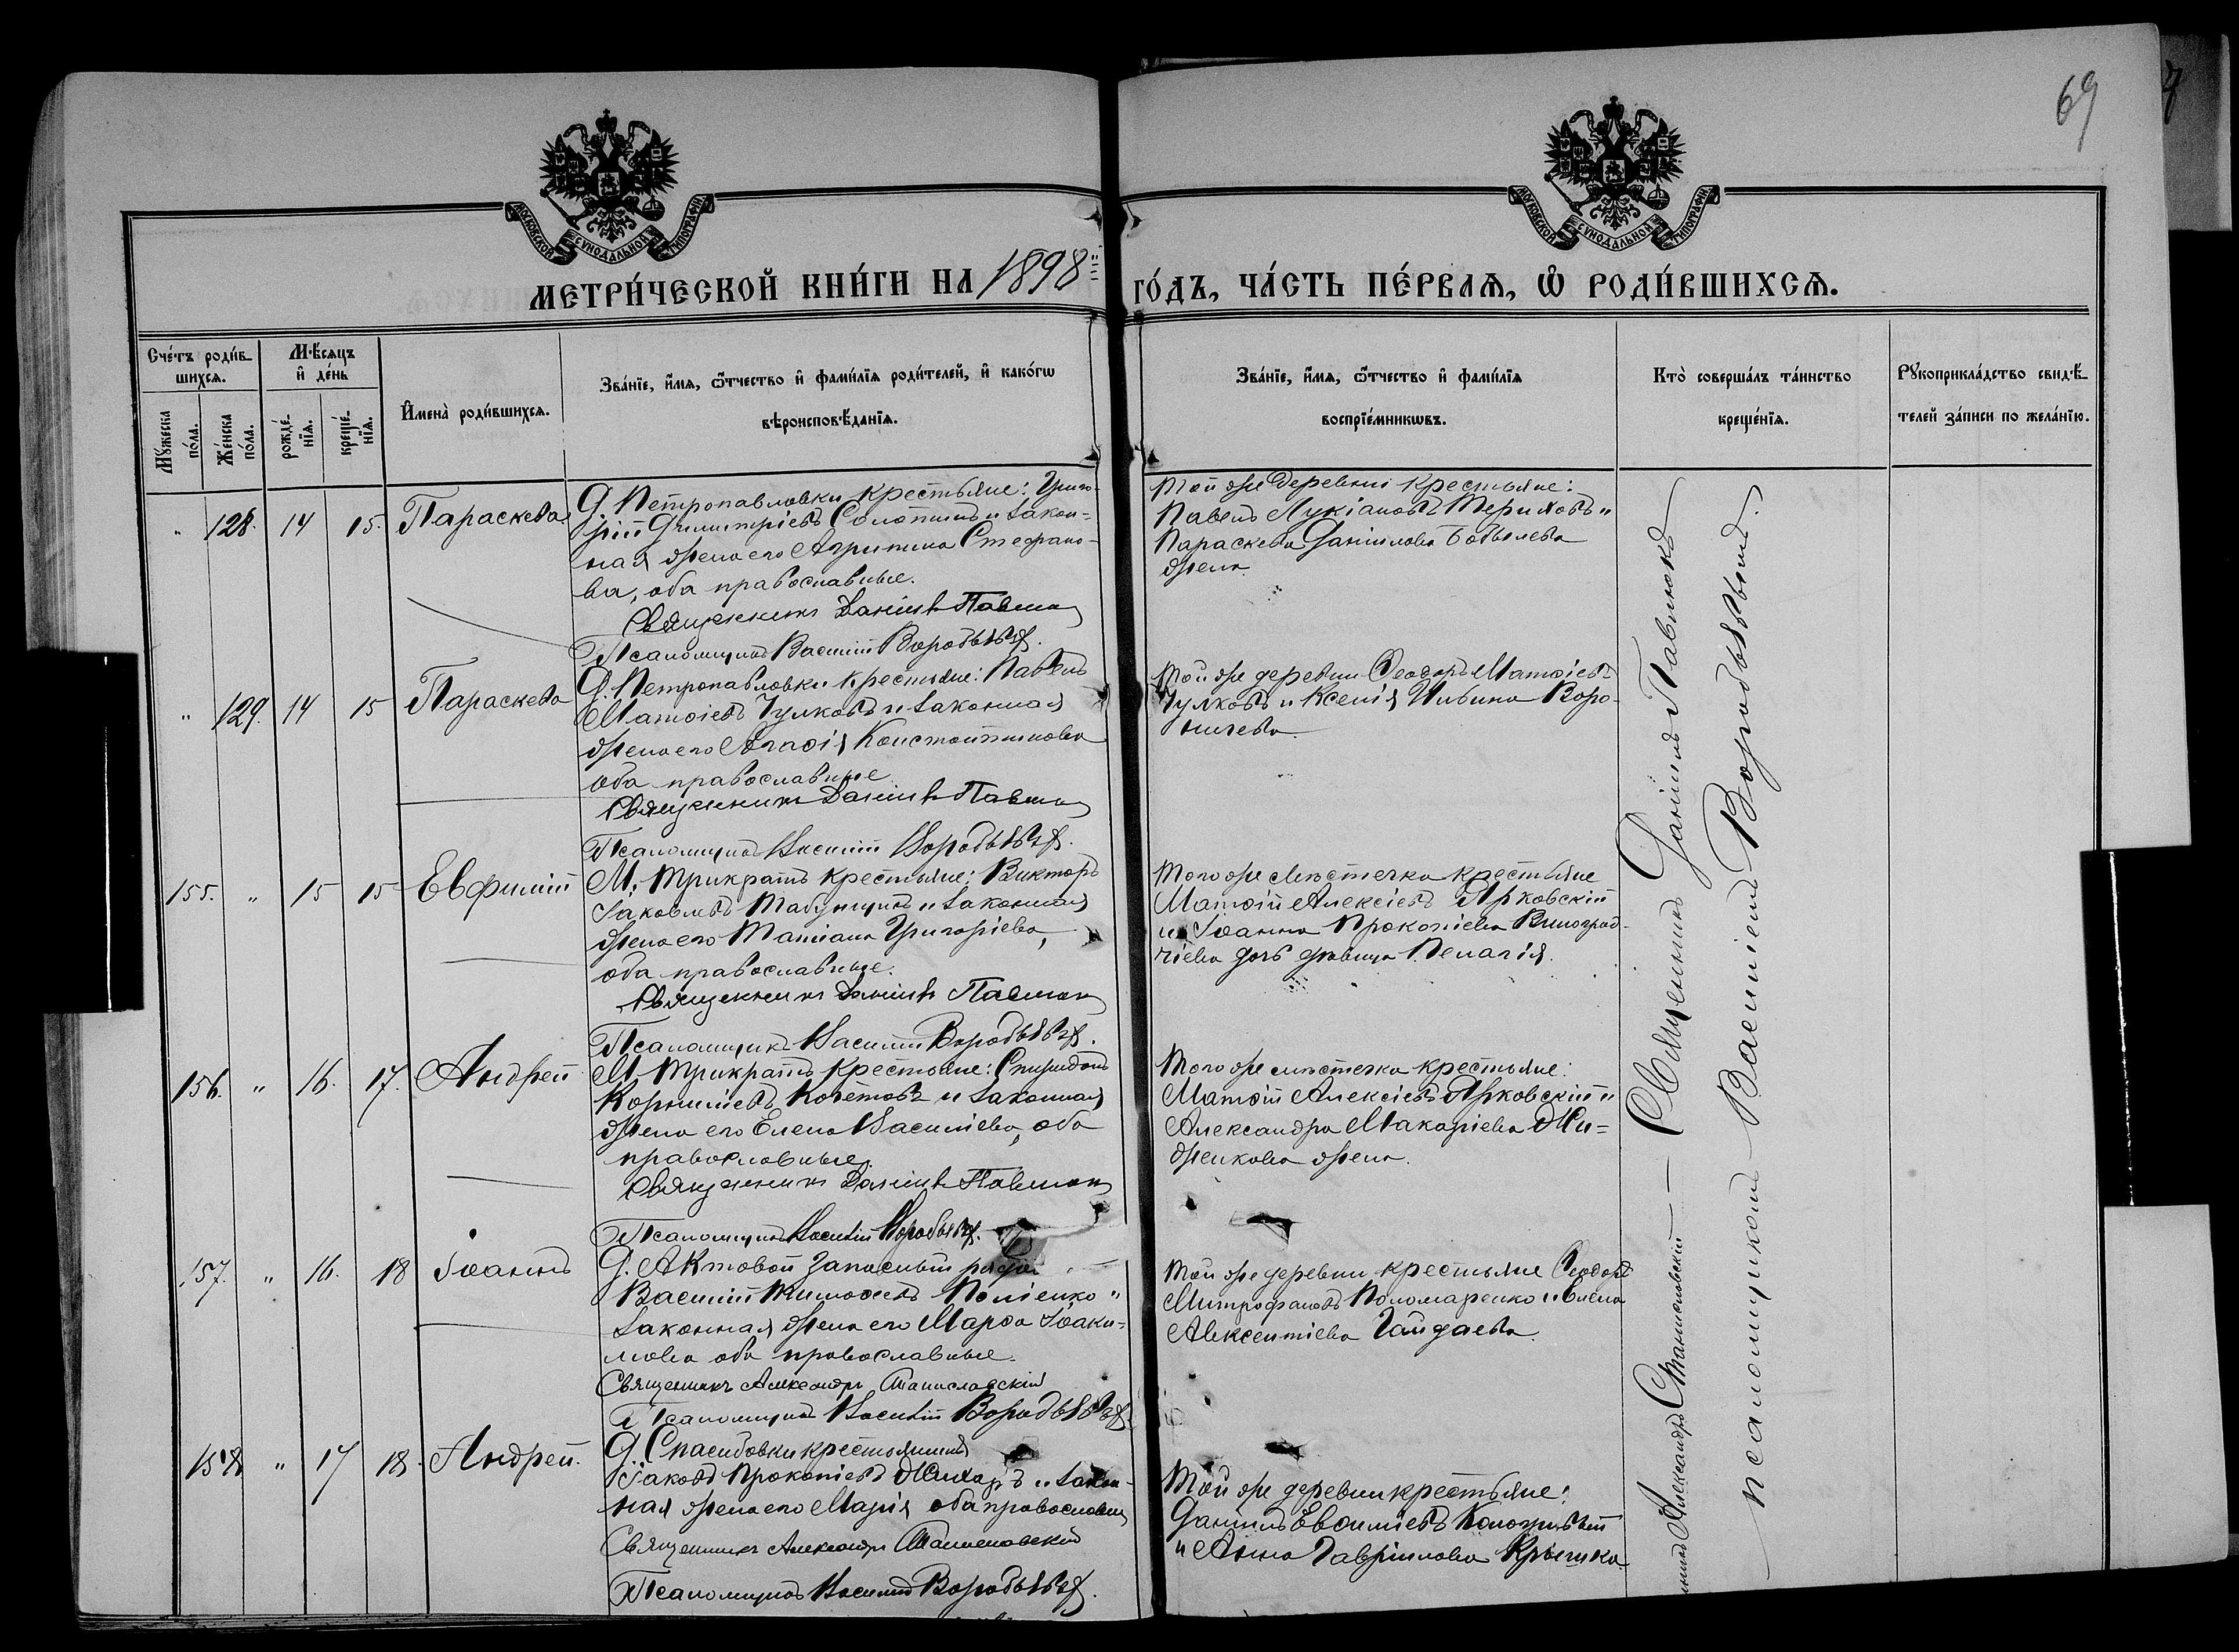 69
МОСКОВСКОЙ СѴНОДАЛЬНОЙ ТИПОГРАФІИ
МОСКОВСКОЙ СѴНОДАЛЬНОЙ ТИПОГРАФІИ
МЕТРИ́ЧЕСКОЙ КНИ́ГИ НА 1898 ГО́ДЪ, ЧА́СТЬ ПЕ́РВАѦ, Ѡ҆ РОДИ́ВШИХСѦ.
Сче́тъ роди́в-
шихсѧ.
Мꙋ́жеска
по́ла.
Же́нска
по́ла.
М́ѣсѧцъ
и҆ де́нь
рожде́-
нїѧ.
креще́-
нїѧ.
И҆мена̀ роди́вшихсѧ.
Зва́нїе, и҆́мѧ, ѻ҆́тчество и҆ фами́лїѧ роди́телей, и҆ како́гѡ
вѣроисповѣ́данїѧ.
Зва́нїе, и҆́мѧ, ѻ҆́тчество и҆ фами́лїѧ
воспрїе́мникѡвъ.
Кто̀ соверша́лъ та́инство
креще́нїѧ.
Рꙋкоприкла́дство свидѣ́-
телей за́писи по жела́нїю.
" 128. 14 15. Параскева
Д. Петропавловки крестьяне: Григо-
рій Димитріевъ Солотинъ и закон-
ная жена его Агрипина Стефано-
ва, оба православные.
Священникъ Даніилъ Павлюкъ
Псаломщикъ Василій Воробьевъ.
Той же деревни крестьяне:
Павелъ Лукіановъ Териховъ и
Параскева Даніилова Бобылева
жена.
" 129. 14 15 Параскева
Д. Петропавловки крестьяне: Павелъ
Матѳіевъ Чулковъ и законная
жена его Агаѳія Константинова
оба православные
Священникъ Даніилъ Павлюкъ
Псаломщикъ Василій Воробьевъ.
Той же деревни Ѳеодоръ Матѳіевъ
Чулковъ и Ксенія Ильина Воро-
ничева.
155. " 15 15 Евфимій
М. Трикратъ крестьяне: Викторъ
Іаковлевъ Табунщикъ и законная
жена его Татіана Григоріева,
оба православные.
Священникъ Даніилъ Павлюкъ
Псаломщикъ Василій Воробьевъ.
Того же мѣстечка крестьяне
Матѳій Алексіевъ Ярковскій
и Іоанна Прокопіева Виноград-
чіева дочь дѣвица Пелагія.
156. " 16. 17. Андрей
М. Трикратъ крестьяне: Спиридонъ
Корниліевъ Кочетовъ и законная
жена его Елена Василіева, оба
православные.
Священникъ Даніилъ Павлюкъ
Псаломщикъ Василій Воробьевъ.
Того же мѣстечка крестьяне:
Матѳій Алексіевъ Ярковскій и
Александра Макаріева Жи-
женкова жена.
157. " 16. 18 Іоаннъ
Д. Актовой запасный
Василій Тимоѳеевъ Поліенко и
законная жена его Марѳа Іоаки-
мова оба православные.
Священникъ Александръ Станиславскій
Псаломщикъ Василій Воробьевъ.
Той же деревни крестьяне Ѳеодоръ
Митрофановъ Пономаренко и Елена
Авксентіева Гайдаева.
158 " 17 18. Андрей.
Д. Спасибовки крестьянинъ
Іаковъ Прокопіевъ и закон-
ная жена его Марія оба православны
Священникъ Александръ Станиславскій
Псаломщикъ Василій Воробьевъ.
Той же деревни крестьяне:
Даніилъ Евѳиміевъ Кологривый
и Анна Гавріилова
Александръ Станиславскій — Священникъ Даніилъ Павлюкъ
псаломщикомъ Василіемъ Воробьевымъ.